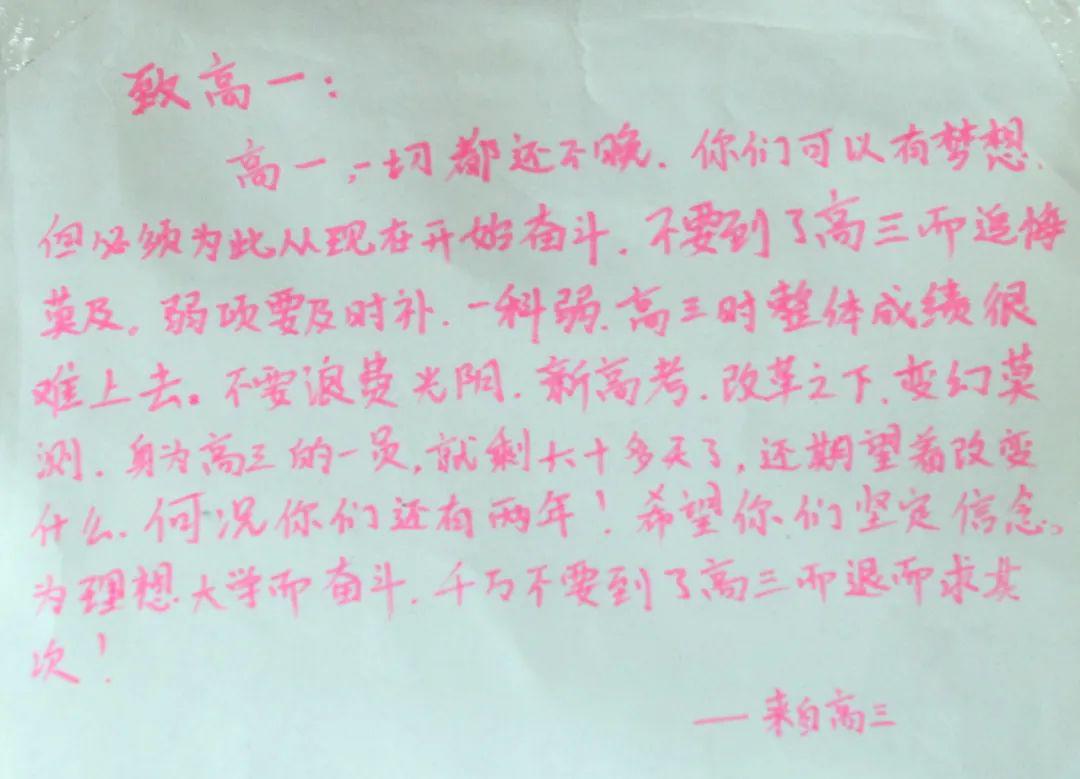 致高一：
高一，一切都还不晚．你们可以有梦想．
但必须为此从现在开始奋斗．不要到了高三而追悔
莫及．弱项要及时补．一科弱．高三时整体成绩很
难上去。不要浪费光阴．新高考．改革之下．变幻莫
测．身为高三的一员，就剩六十多天了，还期望着改变
什么．何况你们还有两年！希望你们坚定信念。
为理想大学而奋斗．千万不要到了高三而退而求其
次！
——来自高三